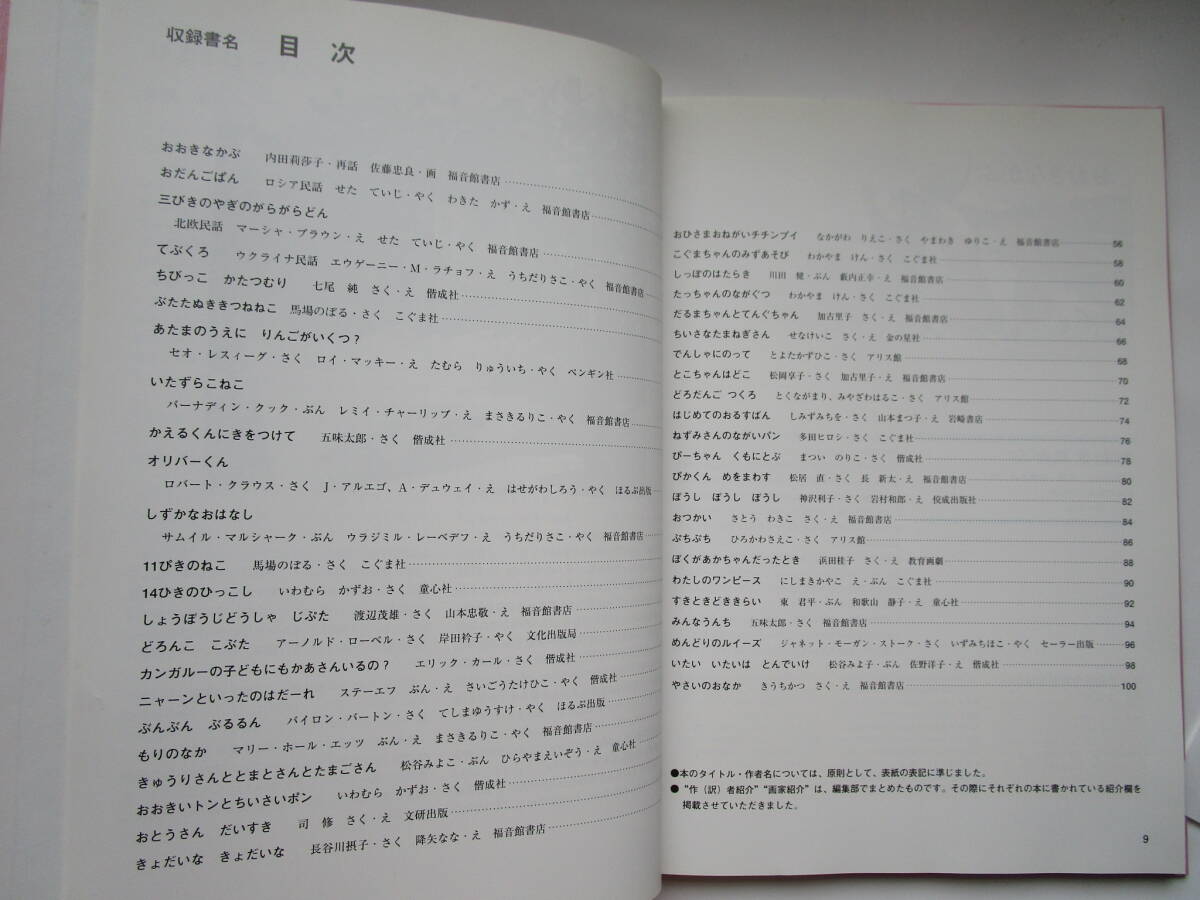 収録書名 目 次
おおきなかぶ 内田莉莎子・再話 佐藤忠良・画 福音館書店
おだんごぱん ロシア民話 せた ていじ・やく わきた かず・え 福音館書店
三びきのやぎのがらがらどん
北欧民話 マーシャ・ブラウン・え せた ていじ・やく 福音館書店
てぶくろ ウクライナ民話 エウゲーニー・M・ラチョフ・え うちだりさこ・やく 福音館書店
ちびっこ かたつむり 七尾 純 さく・え 偕成社
ぶたたぬききつねねこ 馬場のぼる・さく こぐま社
あたまのうえに りんごがいくつ？
セオ・レスィーグ・さく ロイ・マッキー・え たむら りゅういち・やく ペンギン社
いたずらこねこ
バーナディン・クック・ぶん レミイ・チャーリップ・え まさきるりこ・やく 福音館書店
かえるくんにきをつけて 五味太郎・さく 偕成社
オリバーくん
ロバート・クラウス・さく J・アルエゴ、A・デュウェイ・え はせがわしろう・やく ほるぷ出版
しずかなおはなし
サムイル・マルシャーク・ぶん ウラジミル・レーベデフ・え うちだりさこ・やく 福音館書店
11ぴきのねこ 馬場のぼる・さく こぐま社
14ひきのひっこし いわむら かずお・さく 童心社
しょうぼうじどうしゃ じぷた 渡辺茂雄・さく 山本忠敬・え 福音館書店
どろんこ こぶた アーノルド・ローベル・さく 岸田衿子・やく 文化出版局
カンガルーの子どもにもかあさんいるの？ エリック・カール・さく 偕成社
ニャーンといったのはだーれ ステーエフ ぶん・え さいごうたけひこ・やく 偕成社
ぶんぶん ぶるるん バイロン・バートン・さく てしまゆうすけ・やく ほるぷ出版
もりのなか マリー・ホール・エッツ ぶん・え まさきるりこ・やく 福音館書店
きゅうりさんととまとさんとたまごさん 松谷みよこ・ぶん ひらやまえいぞう・え 童心社
おおきいトンとちいさいポン いわむら かずお・さく 偕成社
おとうさん だいすき 司 修 さく・え 文研出版
きょだいな きょだいな 長谷川摂子・さく 降矢なな・え 福音館書店
おひさまおねがいチチンプイ なかがわ りえこ・さく やまわき ゆりこ・え 福音館書店 56
こぐまちゃんのみずあそび わかやま けん・さく こぐま社 58
しっぽのはたらき 川田 健・ぶん 薮内正幸・え 福音館書店 60
たっちゃんのながぐつ わかやま けん・さく こぐま社 62
だるまちゃんとてんぐちゃん 加古里子 さく・え 福音館書店 64
ちいさなたまねぎさん せなけいこ さく・え 金の星社 66
でんしゃにのって とよたかずひこ・さく アリス館 68
とこちゃんはどこ 松岡享子・さく 加古里子・え 福音館書店 70
どろだんご つくろ とくながまり、みやざわはるこ・さく アリス館 72
はじめてのおるすばん しみずみちを・さく 山本まつ子・え 岩崎書店 74
ねずみさんのながいパン 多田ヒロシ・さく こぐま社 76
ぴーちゃん くもにとぶ まつい のりこ・さく 偕成社 78
ぴかくん めをまわす 松居 直・さく 長 新太・え 福音館書店 80
ぼうし ぼうし ぼうし 神沢利子・さく 岩村和郎・え 佼成出版社 82
おつかい さとう わきこ さく・え 福音館書店 84
ぷちぷち ひろかわさえこ・さく アリス館 86
ぼくがあかちゃんだったとき 浜田桂子 さく・え 教育画劇 88
わたしのワンピース にしまきかやこ え・ぶん こぐま社 90
すきときどききらい 東 君平・ぶん 和歌山 静子・え 童心社 92
みんなうんち 五味太郎・さく 福音館書店 94
めんどりのルイーズ ジャネット・モーガン・ストーク・さく いずみちほこ・やく セーラー出版 96
いたい いたいは とんでいけ 松谷みよ子・ぶん 佐野洋子・え 偕成社 98
やさいのおなか きうちかつ さく・え 福音館書店 100
●本のタイトル・作者名については、原則として、表紙の表記に準じました。
●“作（訳）者紹介”“画家紹介”は、編集部でまとめたものです。その際にそれぞれの本に書かれている紹介欄を
掲載させていただきました。
9